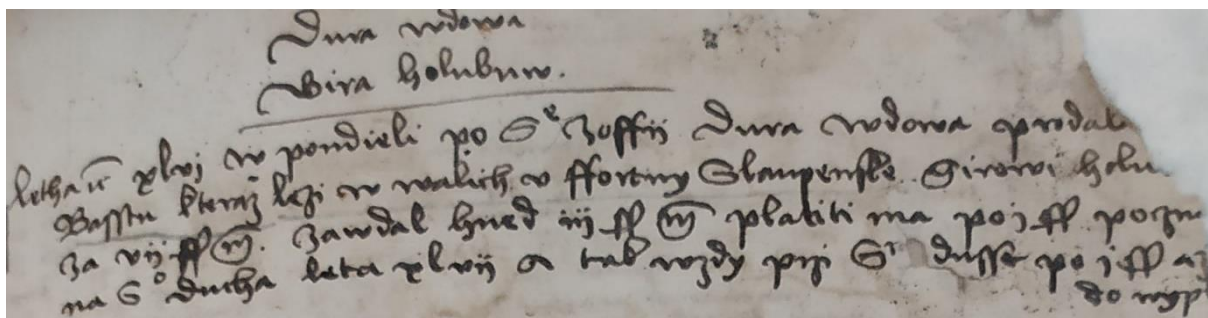 Dura wdowa
Gira holubuw.
letha ıc xlvj w pondieli po Sᵉ zoffij Dura wdowa prodala
Basstu kteraz lezi w walich v ffortny Slaupenske Girowi holu
za vij ff m. zawdal hned iij ff m platiti ma po j ff poczna
na S° ducha leta xlvij a tak wzdy przi Sᵗ dusse po j ff az
do wyp